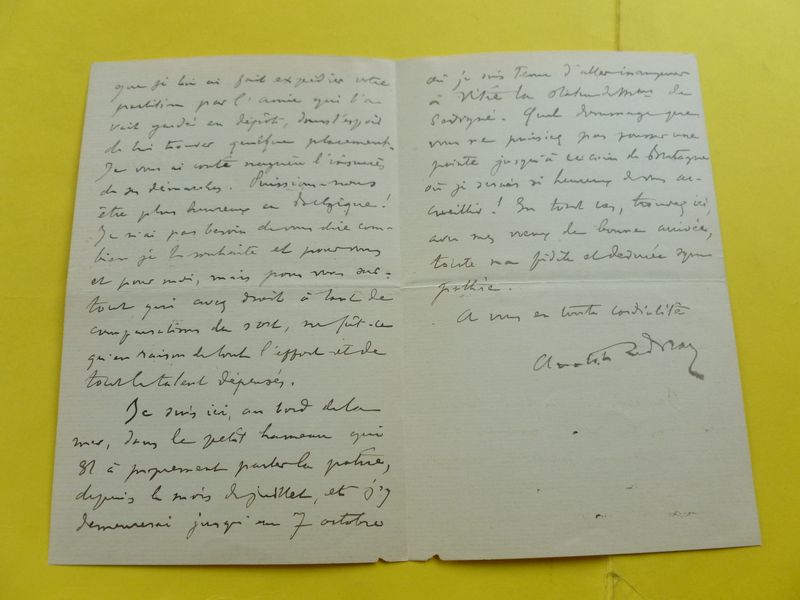 que je lui ai fait expédier votre
partition par l'amie qui l'a
vait gardée en dépôt, dans l'espoir
de lui trouver quelque placement.
Je vous ai conté naguère l'insuccès
de ses démarches. Puissions-nous
être plus heureux en Belgique!
Je n'ai pas besoin de vous dire com-
bien je le souhaite et pour vous
et pour moi, mais pour vous sur-
tout qui avez droit à tant de
compensations du sort, ne fût-ce
qu'en raison de tout l'effort et de
tout le talent dépensés.
Je suis ici, au bord de la
mer, dans le petit hameau qui
est à proprement parler la patrie,
depuis le mois de juillet, et j'y
demeurerai jusqu'au 7 octobre
où je suis tenu d'aller inaugurer
à Vitré la statue de Mme de
Sévigné. Quel dommage que
vous ne puissiez pas pousser une
pointe jusqu'à ce coin de Bretagne
où je serais si heureux de vous ac-
cueillir! En tout cas, trouvez ici,
avec mes vœux de bonne arrivée,
toute ma fidèle et dévouée sym
pathie.
A vous en toute cordialité